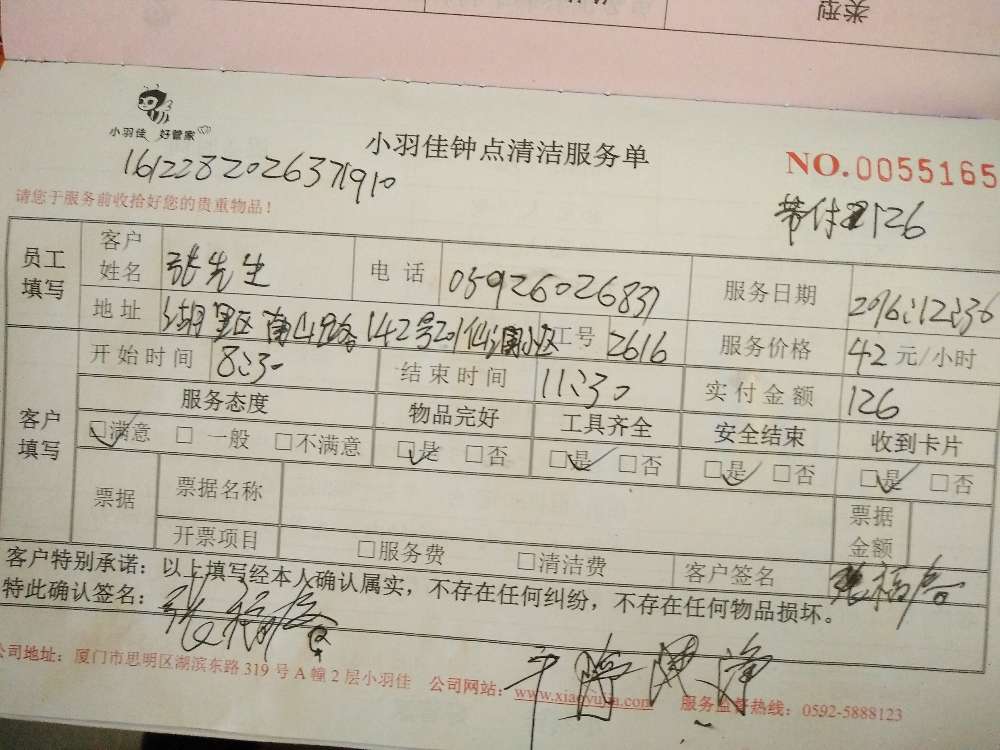 类型
小羽佳 好管家
小羽佳钟点清洁服务单
NO.0055165
1612282026371910
请您于服务前收拾好您的贵重物品！
126
员工填写 客户姓名 张先生 电话 05926026837 服务日期
地址 湖里区南山路142号201仙洞小区 工号 2616 服务价格 42元/小时
客户填写 开始时间 8:30 结束时间 11:30 实付金额 126
服务态度 物品完好 工具齐全 安全结束 收到卡片
□满意 □一般 □不满意 □是 □否 □是 □否 □是 □否 □是 □否
票据 票据名称 票据金额
开票项目 □服务费 □清洁费 客户签名
客户特别承诺：以上填写经本人确认属实，不存在任何纠纷，不存在任何物品损坏。
特此确认签名：
公司地址：厦门市思明区湖滨东路319号A幢2层小羽佳 公司网站：www.xiaoyujia.com 服务监督热线：0592-5888123